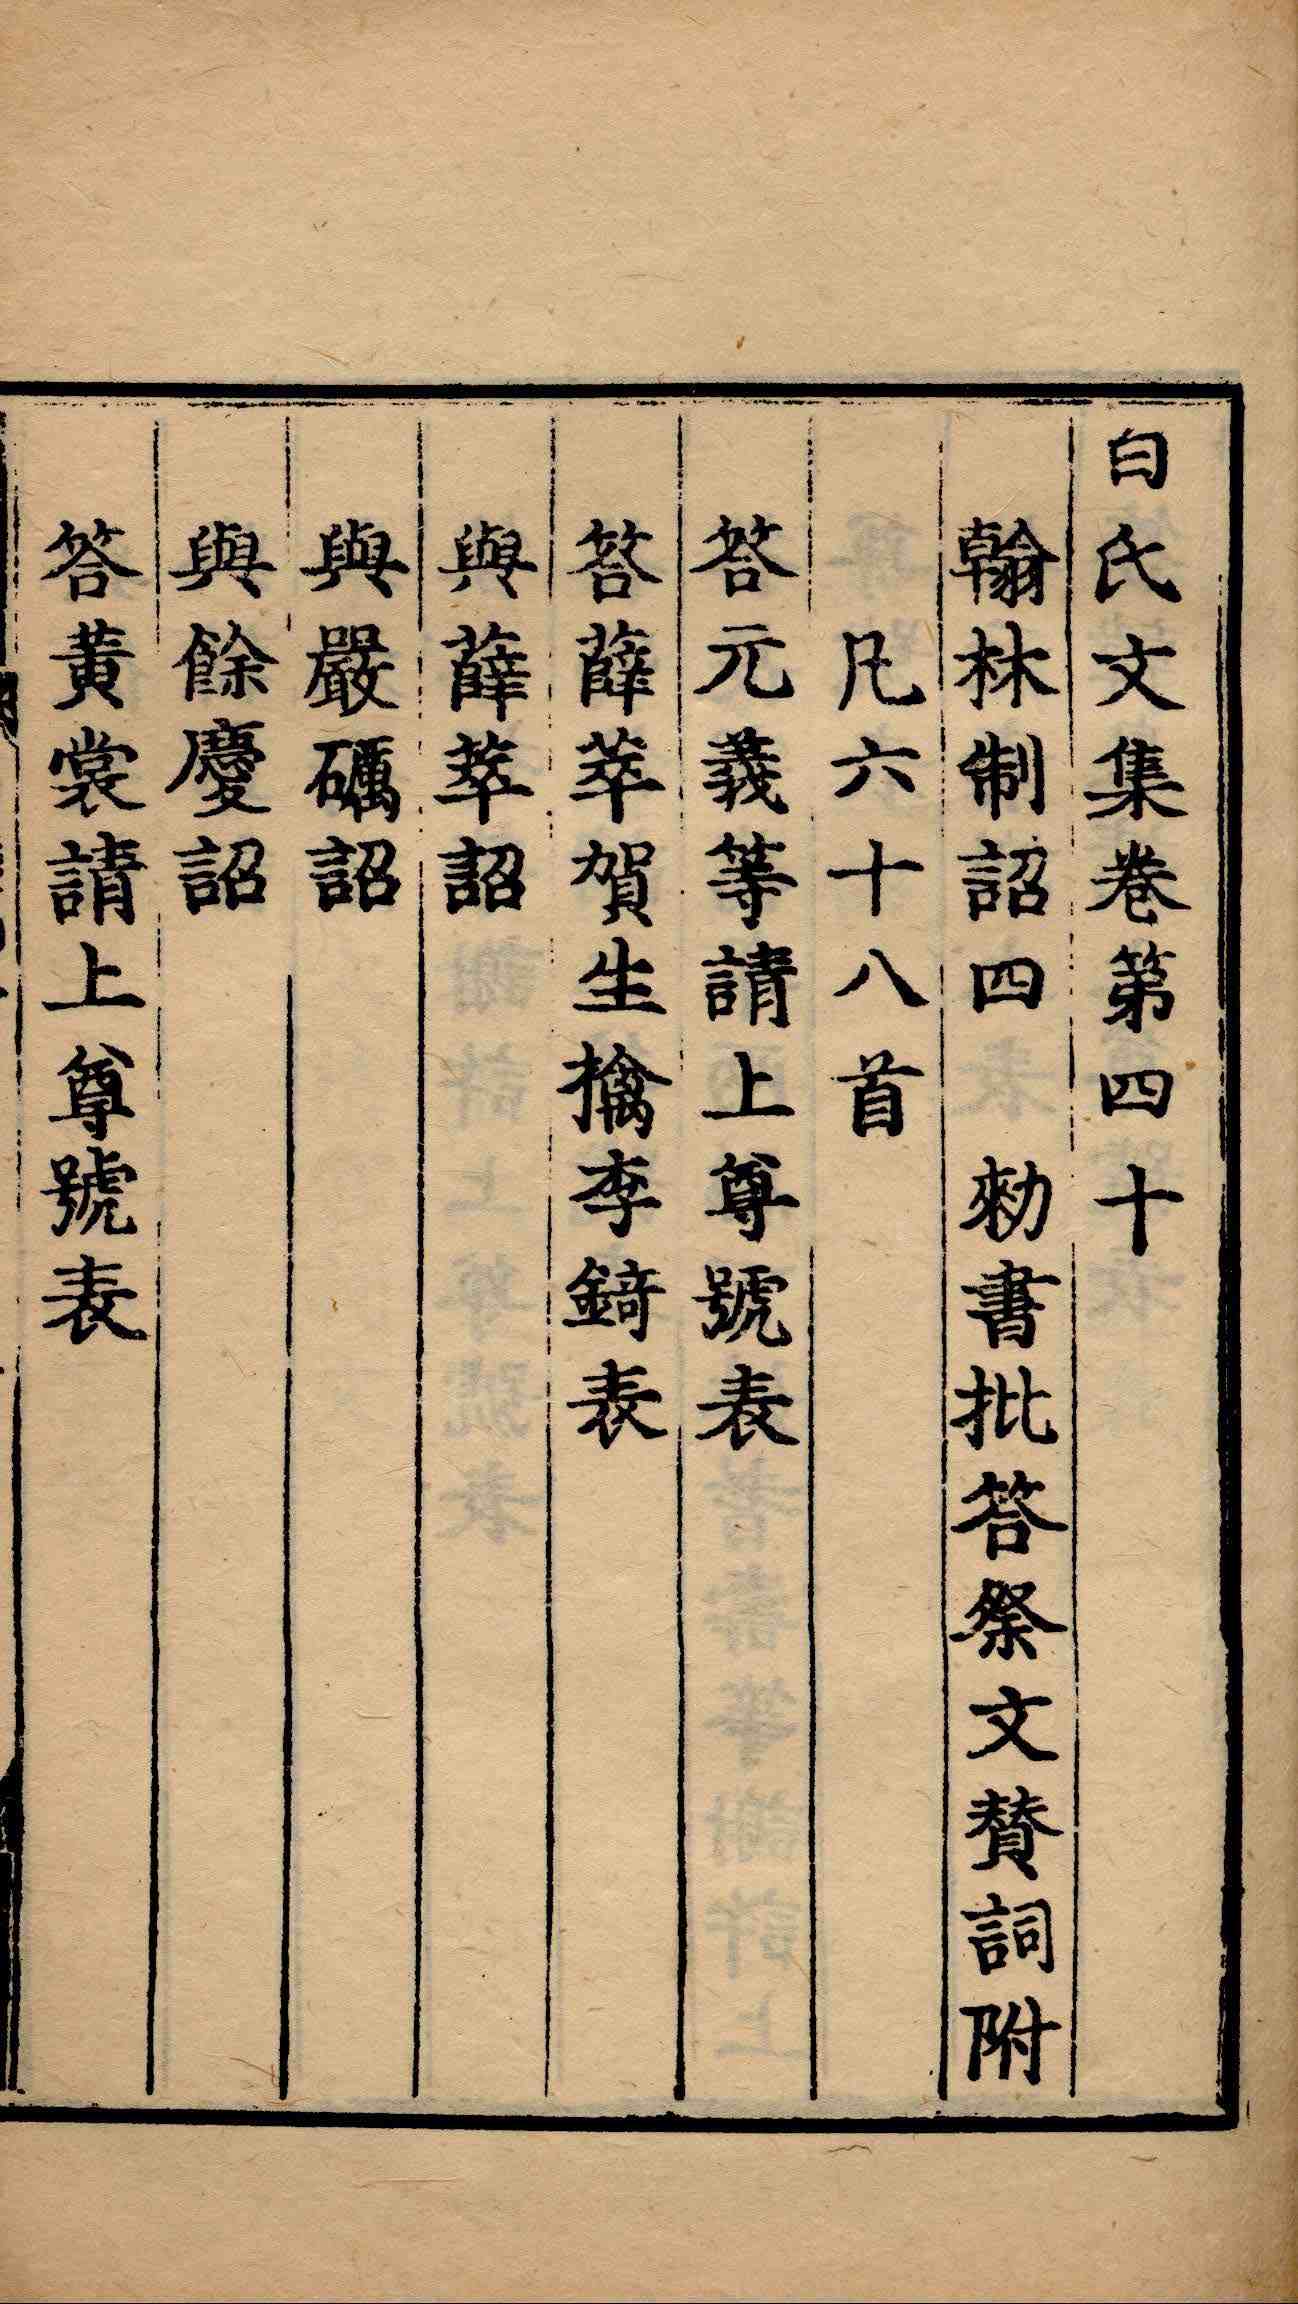 白氏文集卷第四十
翰林制詔四　勑書批荅祭文賛詞附
凡六十八首
荅元義等請上尊號表
荅薛萃賀生擒李錡表
與薛萃詔
與嚴礪詔
與餘慶詔
荅黃裳請上尊號表